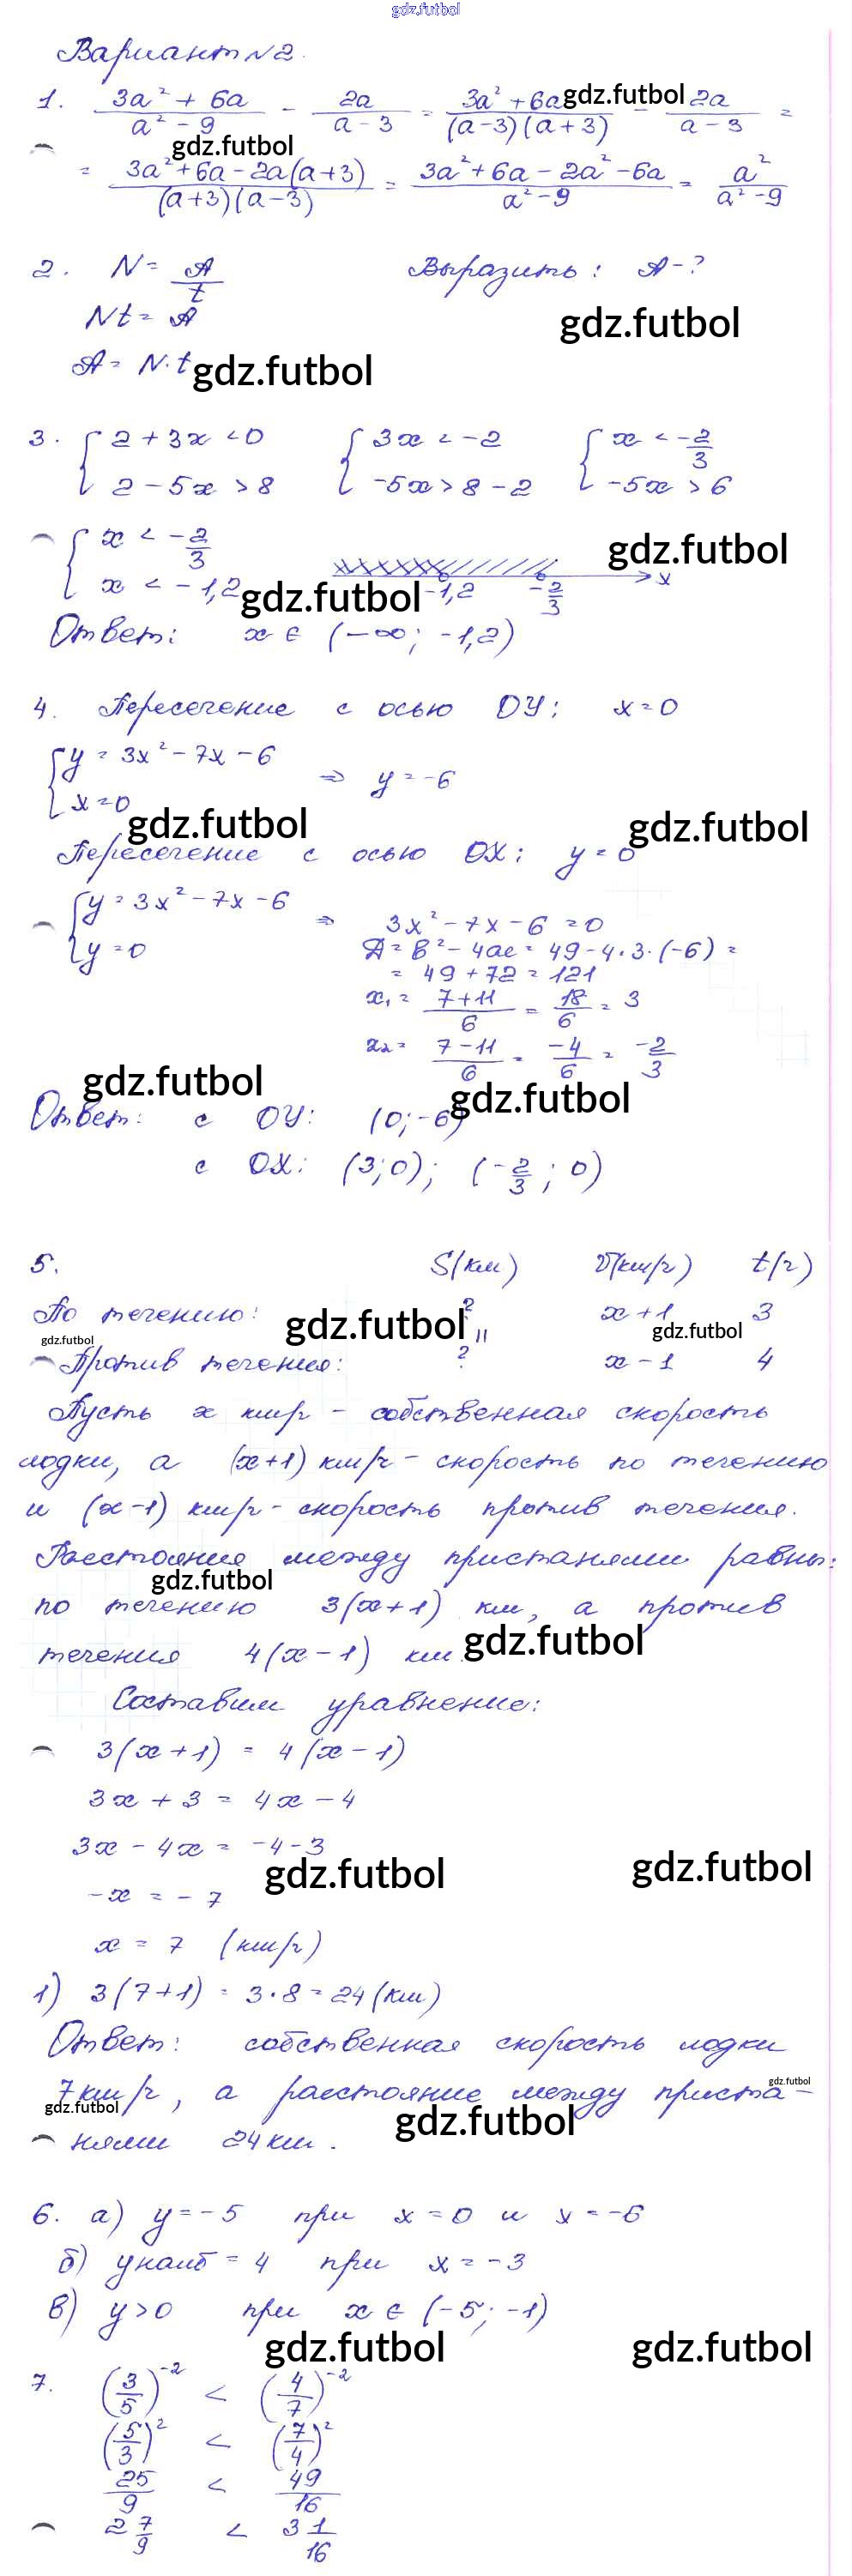 gdz.futbol
Вариант №2.
1. (3a² + 6a)/(a² - 9) - 2a/(a - 3) = (3a² + 6a)/((a-3)(a+3)) - 2a/(a - 3) =
gdz.futbol
gdz.futbol
= (3a² + 6a - 2a(a+3))/((a+3)(a-3)) = (3a² + 6a - 2a² - 6a)/(a² - 9) = a²/(a² - 9)
2. N = A/t Выразить: A - ?
Nt = A
gdz.futbol
A = N·t
gdz.futbol
3. { 2 + 3x < 0 { 3x < -2 { x < -2/3
2 - 5x > 8 -5x > 8 - 2 -5x > 6
{ x < -2/3
gdz.futbol
x < -1,2 -1,2 -2/3 x
gdz.futbol
Ответ: x ∈ (-∞; -1,2)
4. Пересечение с осью OY: x = 0
{ y = 3x² - 7x - 6 ⇒ y = -6
x = 0
gdz.futbol
gdz.futbol
Пересечение с осью OX: y = 0
{ y = 3x² - 7x - 6 ⇒ 3x² - 7x - 6 = 0
y = 0 D = b² - 4ac = 49 - 4·3·(-6) =
= 49 + 72 = 121
x₁ = (7+11)/6 = 18/6 = 3
x₂ = (7-11)/6 = -4/6 = -2/3
gdz.futbol
gdz.futbol
Ответ: с OY: (0; -6)
с OX: (3; 0); (-2/3; 0)
5. S(км) V(км/ч) t(ч)
По течению: ? x + 1 3
gdz.futbol
gdz.futbol
gdz.futbol
Против течения: ? x - 1 4
Пусть x км/ч - собственная скорость
лодки, а (x+1) км/ч - скорость по течению
и (x-1) км/ч - скорость против течения.
Расстояние между пристанями равны:
gdz.futbol
по течению 3(x+1) км, а против
течения 4(x-1) км.
gdz.futbol
Составим уравнение:
3(x+1) = 4(x-1)
3x + 3 = 4x - 4
3x - 4x = -4 - 3
gdz.futbol
gdz.futbol
-x = -7
x = 7 (км/ч)
1) 3(7+1) = 3·8 = 24 (км)
Ответ: собственная скорость лодки
7 км/ч, а расстояние между приста-
gdz.futbol
gdz.futbol
gdz.futbol
нями 24 км.
6. а) y = -5 при x = 0 и x = -6
б) yнаиб = 4 при x = -3
в) y > 0 при x ∈ (-5; -1)
gdz.futbol
gdz.futbol
7. (3/5)⁻² < (4/7)⁻²
(5/3)² < (7/4)²
25/9 < 49/16
2 7/9 < 3 1/16